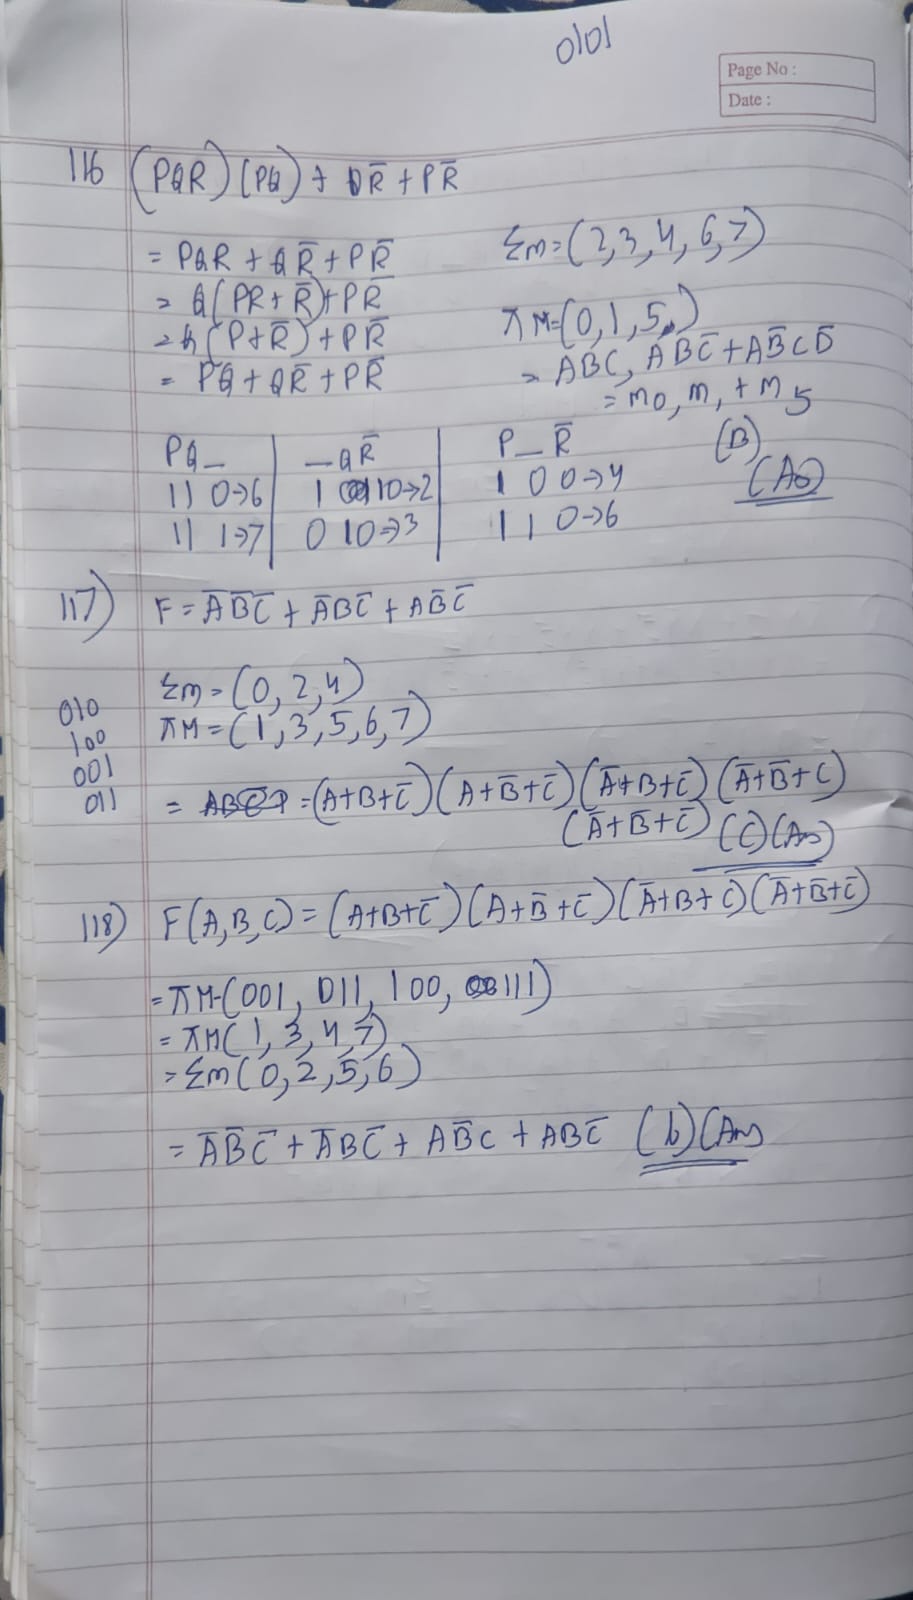 0101
Page No :
Date :
116 (PQR) (PQ) + QR̅ + PR̅
= PQR + QR̅ + PR̅
= Q(PR + R̅) + PR̅
= Q(P + R̅) + PR̅
= PQ + QR̅ + PR̅
Σm = (2, 3, 4, 6, 7)
πM = (0, 1, 5,)
= ABC, A̅BC̅ + AB̅CD̅
= m0, m1 + m5
(B)
(Ans)
PQ_ | _QR̅ | P_R̅
11 0→6 | 1 10→2 | 1 0 0→4
11 1→7 | 0 10→3 | 1 1 0→6
117) F = A̅B̅C̅ + A̅BC̅ + AB̅C̅
Σm = (0, 2, 4)
πM = (1, 3, 5, 6, 7)
010
100
001
011
= (A+B+C̅) (A+B̅+C̅) (A̅+B+C̅) (A̅+B̅+C)
(A̅+B̅+C̅) (C) (Ans)
118) F(A, B, C) = (A+B+C̅) (A+B̅+C̅) (A̅+B+C) (A̅+B̅+C̅)
= πM (001, 011, 100, 111)
= πM (1, 3, 4, 7)
= Σm (0, 2, 5, 6)
= A̅B̅C̅ + A̅BC̅ + AB̅C + ABC̅ (b) (Ans)